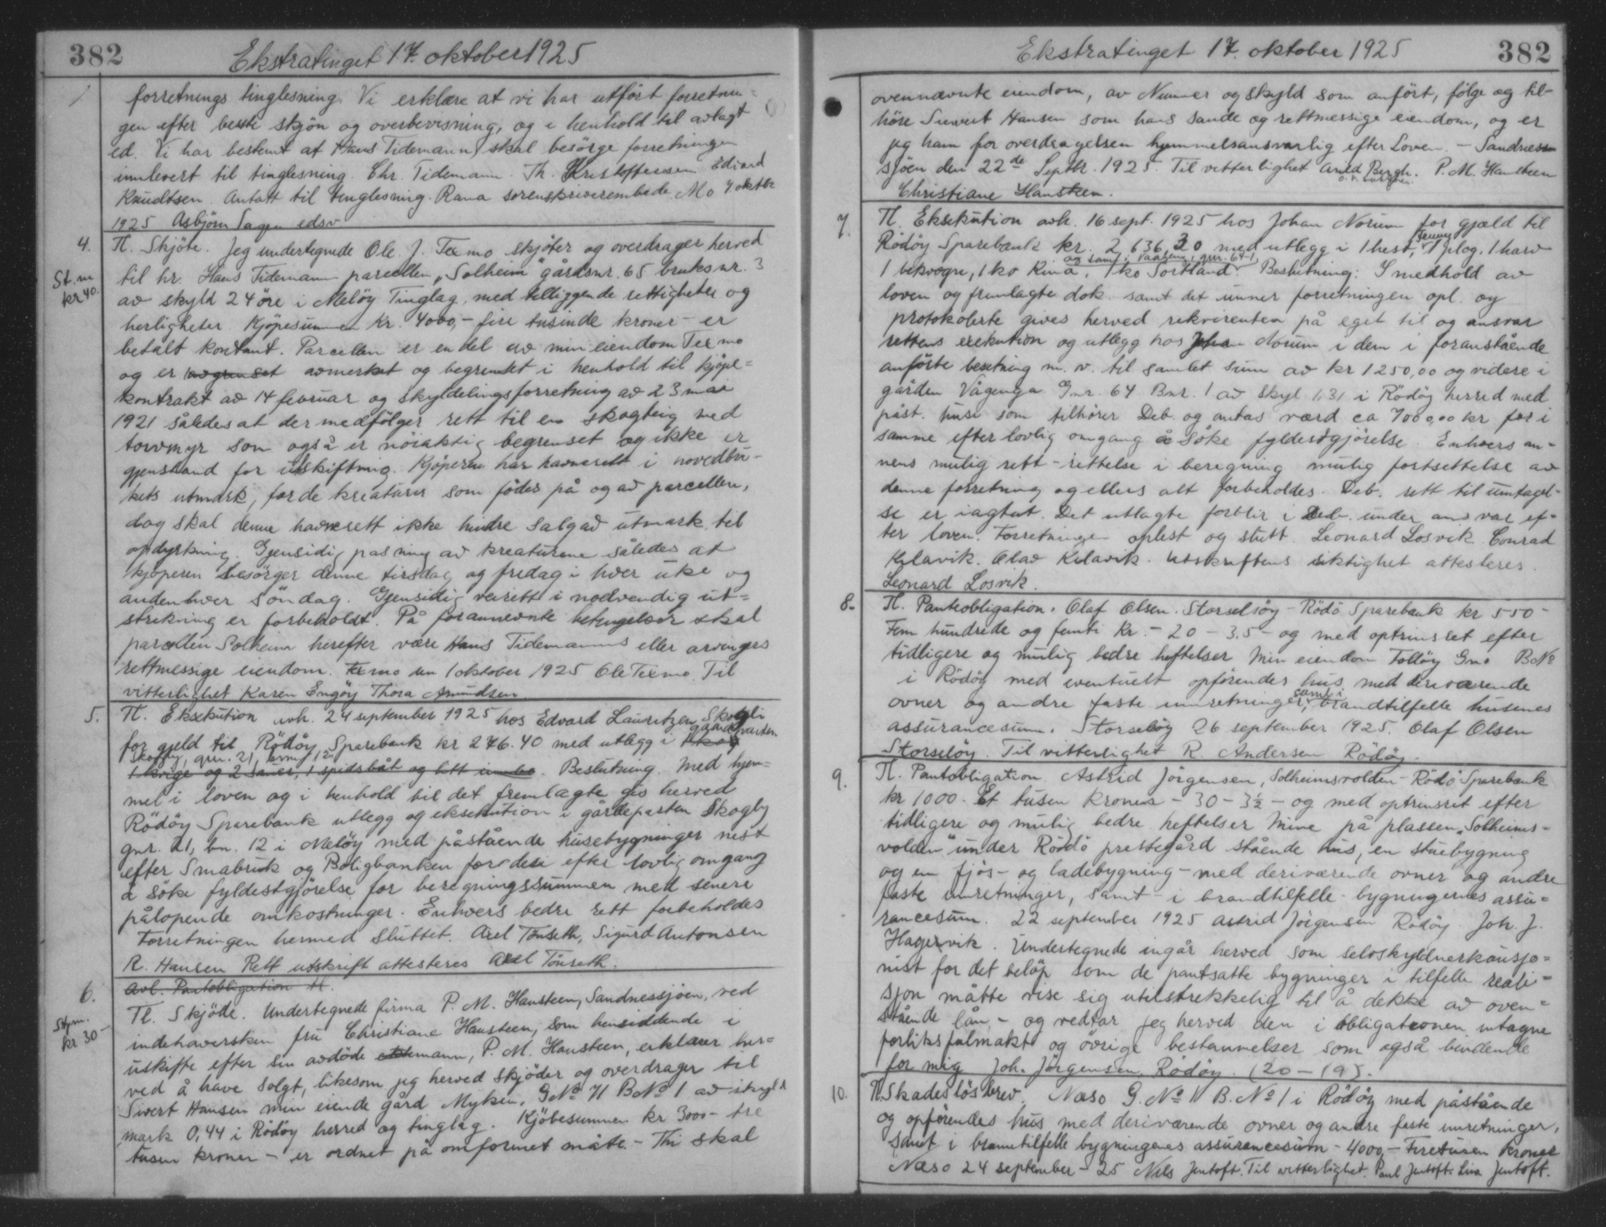 382 Ekstratinget 17. oktober 1925
forretnings tinglesning. Vi erklære at vi har utført forretnin-
gen efter beste skjøn og overbevisning, og i henhold til avlagt
ed. Vi har bestemt at Hans Tidemann skal besörge forretningen
innlevert til tinglesning. Chr. Tidemann. Th. Kristoffersen Edvard
Knudtsen. Antatt til tinglesning. Rana sorenskriverembede Mo 7 oktbr
1925 Asbjörn edsv.
4. Tl. Skjöte. Jeg undertegnede Ole J. Texmo skjöter og overdrager herved
St.m kr 40. til hr. Hans Tidemann parcellen "Solheim" gårdsnr. 65 bruksnr. 3
av skyld 24 öre i Melöy Tinglag, med tilliggende rettigheter og
herligheter. Kjöpesummen kr. 4000,- fire tusinde kroner - er
betalt kontant. Parcellen er en del av min eiendom Texmo
og er avmerket og begrenset i henhold til kjöpe-
kontrakt av 14 februar og skyldelingsforretning av 23 mai
1921 således at der medfölger rett til en skogteig ved
torvmyr som også er nöiaktig begrenset og ikke er
gjenstand for utskiftning. Kjöperen har havnerett i hovedbru-
kets utmark, for de kreaturer som födes på og av parcellen,
dog skal denne havnerett ikke hindre salg av utmark til
opdyrkning. Gjensidig pasning av kreaturene således at
kjöperen besörger denne tirsdag og fredag i hver uke og
andenhver söndag. Gjensidig veirett i nodvendig ut-
strekning er forbeholdt. På forannevnte betingelser skal
parcellen Solheim herefter være Hans Tidemanns eller arvingers
rettmessige eiendom. Texmo den 1 oktober 1925 Ole Texmo. Til
vitterlighet Karen Engöy Thora Amundsen
5. Tl. Eksekution avh. 24 september 1925 hos Edvard Lauritzen Skogli
for gjeld til Rödöy Sparebank kr 246.40 med utlegg i gaardparten
Skogly, gnr. 21, brnr 12
1 kvige og 2 sauer, 1 spidsbåt og litt innbo. Beslutning. Med hjem-
mel i loven og i henhold til det fremlagte gis herved
Rödöy Sparebank utlegg og eksekution i gårdeparten Skogly
gnr. 21, bn. 12 i Melöy med påstående husebygninger nest
efter Småbruk og Boligbanken for deri efter lovlig omgang
å söke fyldestgjörelse for beregningssummen med senere
pålopende omkostninger. Enhvers bedre rett forbeholdes
Forretningen hermed sluttet. Axel Tönseth, Sigurd Antonsen
R. Hansen Rett utskrift attesteres Axel Tönseth.
avl. Pantobligation Tl.
6. Tl. Skjöde. Undertegnede firma P. M. Hansteen, Sandnessjöen, ved
Stpm. kr 30- indehaversken fru Christiane Hansteen, som hensiddende i
uskifte efter sin avdöde mann, P. M. Hansteen, erklærer her-
ved å have solgt, likesom jeg herved skjöder og overdrager til
Sivert Hansen min eiende gård Myken, G.No 71 B.No 1 av skyld
mark 0,44 i Rödöy herred og tinglag. Kjöbesummen kr 3000- tre
tusen kroner - er ordnet på omforenet måte. - Thi skal
Ekstratinget 17. oktober 1925 382
ovennævnte eiendom, av Nummer og skyld som anfört, fölge og til-
höre Sievert Hansen som hans sande og rettmessige eiendom, og er
jeg ham for overdragelsen hjemmelsansvarlig efter Loven. - Sandnes
sjöen den 22de Septbr. 1925. Til vitterlighet Arild Bergh. P. M. Hansteen
Christiane Hansteen.
7. Tl. Eksekution avh. 16 sept. 1925 hos Johan Norum for gjæld til
Rödöy Sparebank kr. 2,636,30 med utlegg i 1 hest, 1 plog, 1 harv
1 vogn, 1 ko Rina, 1 ko Sortland. Beslutning: I medhold av
loven og fremlagte dok. samt det under forretningen opl. og
protokolerte gives herved rekvirenten på eget til og ansvar
rettens exekution og utlegg hos Johan Norum i dem i foranstående
anförte besetning m.v. til samlet sum av kr 1250,00 og videre i
gården Vågenga Gnr. 64 Bnr. 1 av skyl 1.31 i Rödöy herred med
påst. huse som tilhörer Deb og antas værd ca 7000,00 kr for i
samme efter lovlig omgang å söke fyldestgjörelse. Enhvers an-
nens mulig rett - rettelse i beregning mulig fortsettelse av
denne forretning og ellers alt forbeholdes. Deb. rett til undtagel-
se er iagtat. Det utlagte forblir i Deb. under ansvar ef-
ter loven. Forretningen oplest og slutt. Leonard Losvik. Conrad
Kilavik. Olav Kilavik. Utskriftens riktighet attesteres.
Leonard Losvik.
8. Tl. Pantobligation. Olaf Olsen. Storselsöy - Rödö Sparebank kr 550-
Fem hundrede og femti Kr. - 20 - 3.5 - og med optrinsret efter
tidligere og mulig bedre heftelser Min eiendom Follöy Gno BNo
i Rödöy med eventuelt opförendes hus med derivarende
ovner og andre faste innretninger, samt i brandtilfelle husenes
assurancesum. Storselöy 26 september 1925. Olaf Olsen
Storselöy. Til vitterlighet R. Andersen Rödöy.
9. Tl. Pantobligation. Astrid Jörgensen, Solheimsvolden - Rödö Sparebank
kr 1000. Et tusen kroner - 30 - 3½ - og med optrinsrit efter
tidligere og mulig bedre heftelser mine på plassen "Solheims-
volden" under Rödö prestegård stående hus, en stuebygning
og en fjös- og ladebygning - med deriværende ovner og andre
faste innretninger, samt i brandtilfelle bygningernes assu-
rancesum. 22 september 1925 Astrid Jörgensen Rödöy. Joh. J.
Hagervik. Undertegnede ingår herved som selvskyldnerkausjo-
nist for det belöp som de pantsatte bygninger i tilfelle reali-
sjon måtte vise sig utilstrekkelig til å dekke av oven-
stående lån - og vedtar jeg herved den i obligationen intagne
forliksfulmakt og övrige bestemmelser som også bindende
for mig Joh. Jörgensen Rödöy. (20-19).
10. Tl. Skadeslösbrev. Næso G.No 11 B.No 1 i Rödöy med påstående
og opförendes hus med deriværende ovner og andre faste innretninger,
samt i branntilfelle bygningenes assurancesum - 4000,- Firetusen kroner
Næso 24 september - 25 Nils Jentoft. Til vitterlighet. Paul Jentoft. Lina Jentoft.